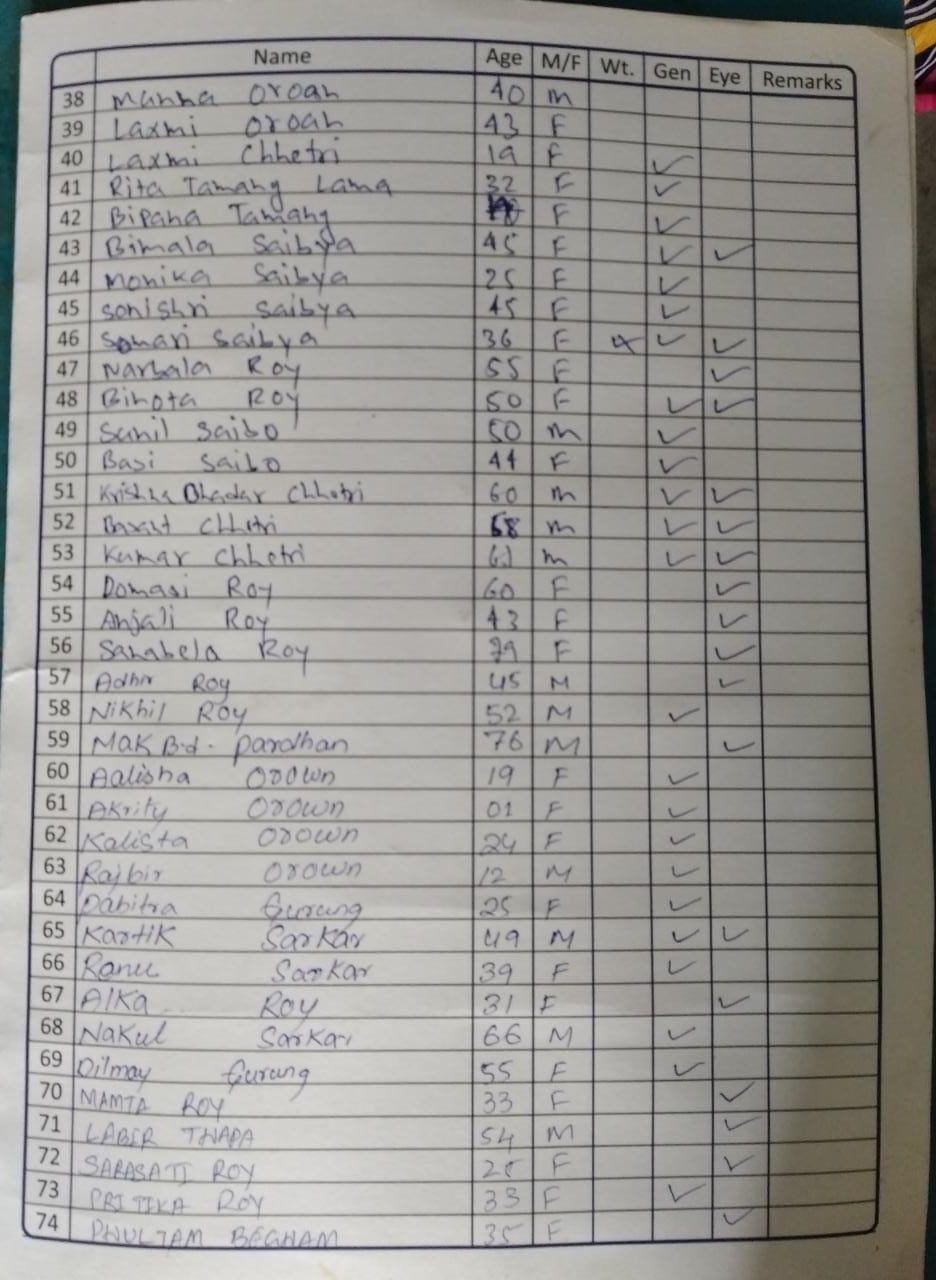 Name Age M/F Wt. Gen Eye Remarks
38 Manna Oroan 40 m
39 Laxmi Oroan 43 F
40 Laxmi Chhetri 19 F ✓
41 Rita Tamang Lama 32 F ✓
42 Bipana Tamang F ✓
43 Bimala Saibya 45 F ✓ ✓
44 Monika Saibya 25 F ✓
45 Sonishri Saibya 45 F ✓
46 Somari Saibya 36 F ✓ ✓
47 Narbala Roy 55 F ✓
48 Binota Roy 50 F ✓ ✓
49 Sunil Saibo 50 m ✓
50 Basi Saibo 44 F ✓
51 Krishna Bhadar Chhetri 60 m ✓ ✓
52 Chhetri 68 m ✓ ✓
53 Kumar Chhetri m ✓ ✓
54 Domasi Roy 60 F ✓
55 Anjali Roy 43 F ✓
56 Sanabela Roy 79 F ✓
57 Adhir Roy 45 M ✓
58 Nikhil Roy 52 M ✓
59 Mak Bd. Pardhan 76 M ✓
60 Aalisha Orown 19 F ✓
61 Akrity Orown 01 F ✓
62 Kalista Orown 24 F ✓
63 Rajbir Orown 12 M ✓
64 Pabitra Gurung 25 F ✓
65 Kartik Sarkar 49 M ✓ ✓
66 Ranu Sarkar 39 F ✓
67 Alka Roy 31 F ✓
68 Nakul Sarkar 66 M ✓
69 Dilmay Gurung 55 F ✓
70 MAMTA ROY 33 F ✓
71 LABIR THAPA 54 M ✓
72 SARASATI ROY F ✓
73 PRITIKA ROY 33 F ✓
74 PHULJAM BEGHAM 35 F ✓